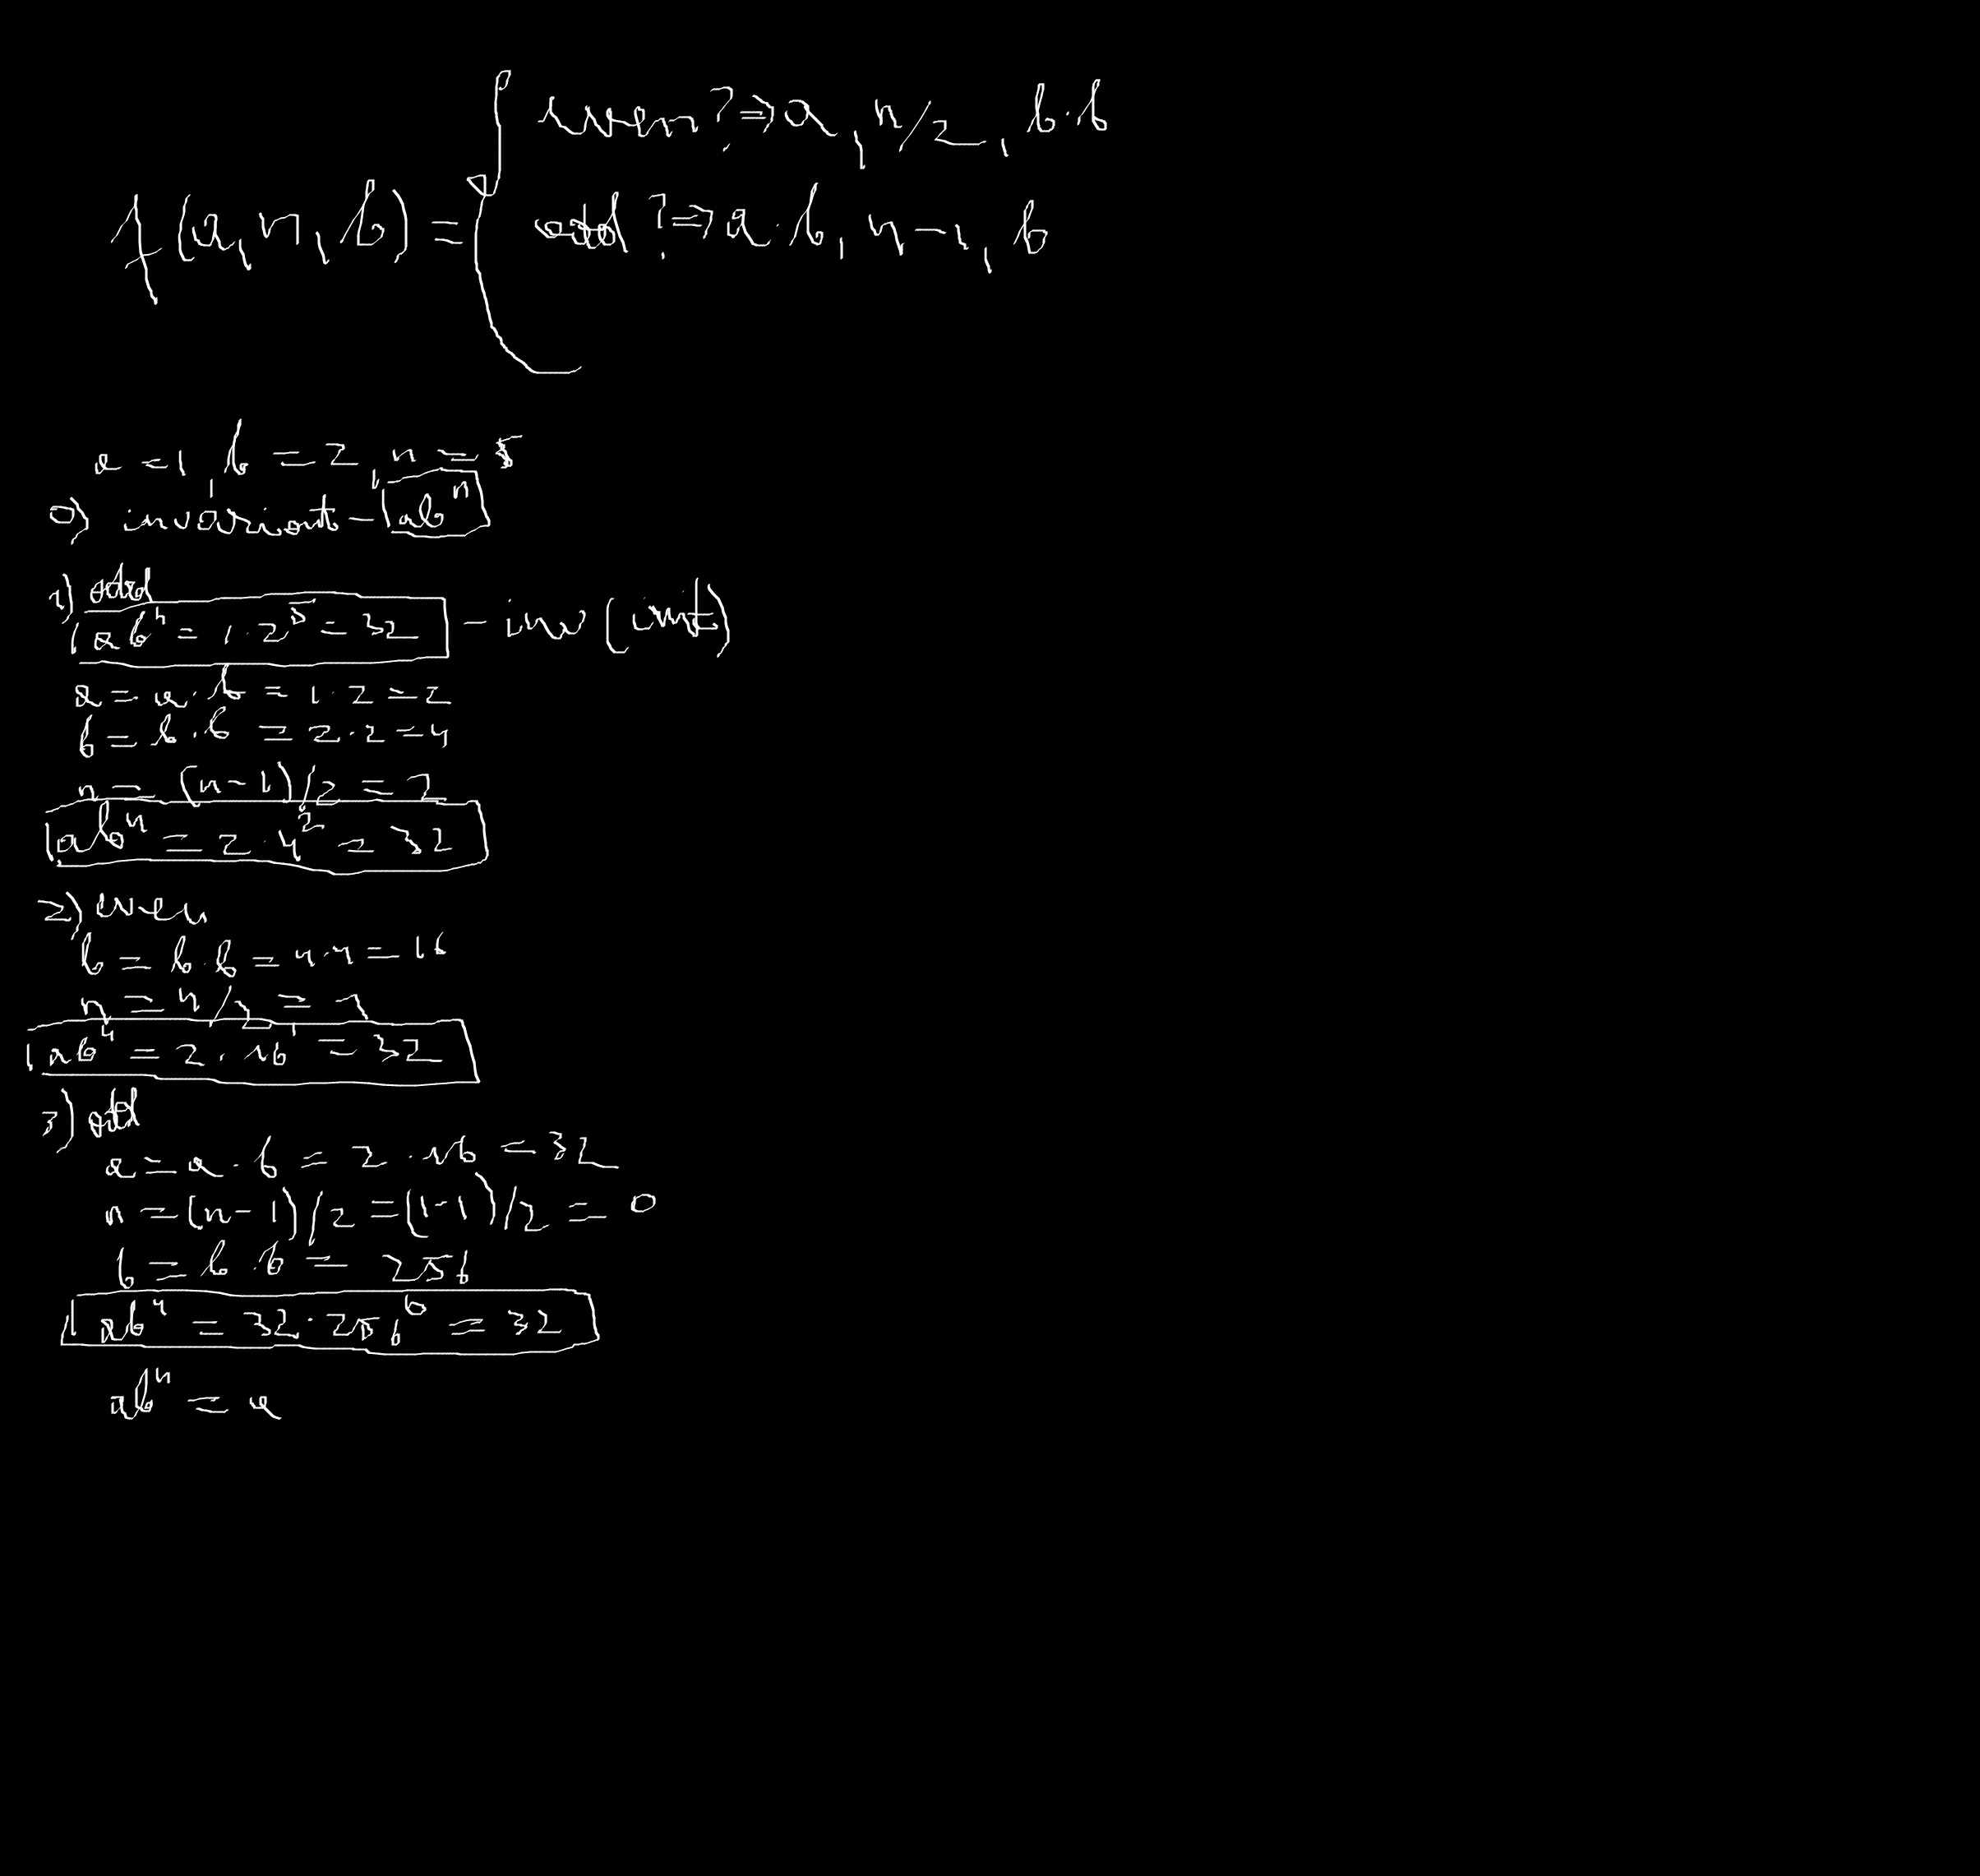 even? ⇒ a, n/2, b·b
f(a, n, b) = { odd? ⇒ a·b, n-1, b
a = 1, b = 2, n = 5
0) invariant - abⁿ
1) odd
abⁿ = 1·2⁵ = 32 - inv (init)
a = a·b = 1·2 = 2
b = b·b = 2·2 = 4
n = (n-1)/2 = 2
abⁿ = 2·4² = 32
2) even
b = b·b = 4·4 = 16
n = n/2 = 1
abⁿ = 2·16¹ = 32
3) odd
a = a·b = 2·16 = 32
n = (n-1)/2 = (1-1)/2 = 0
b = b·b = 256
abⁿ = 32·256⁰ = 32
abⁿ = a